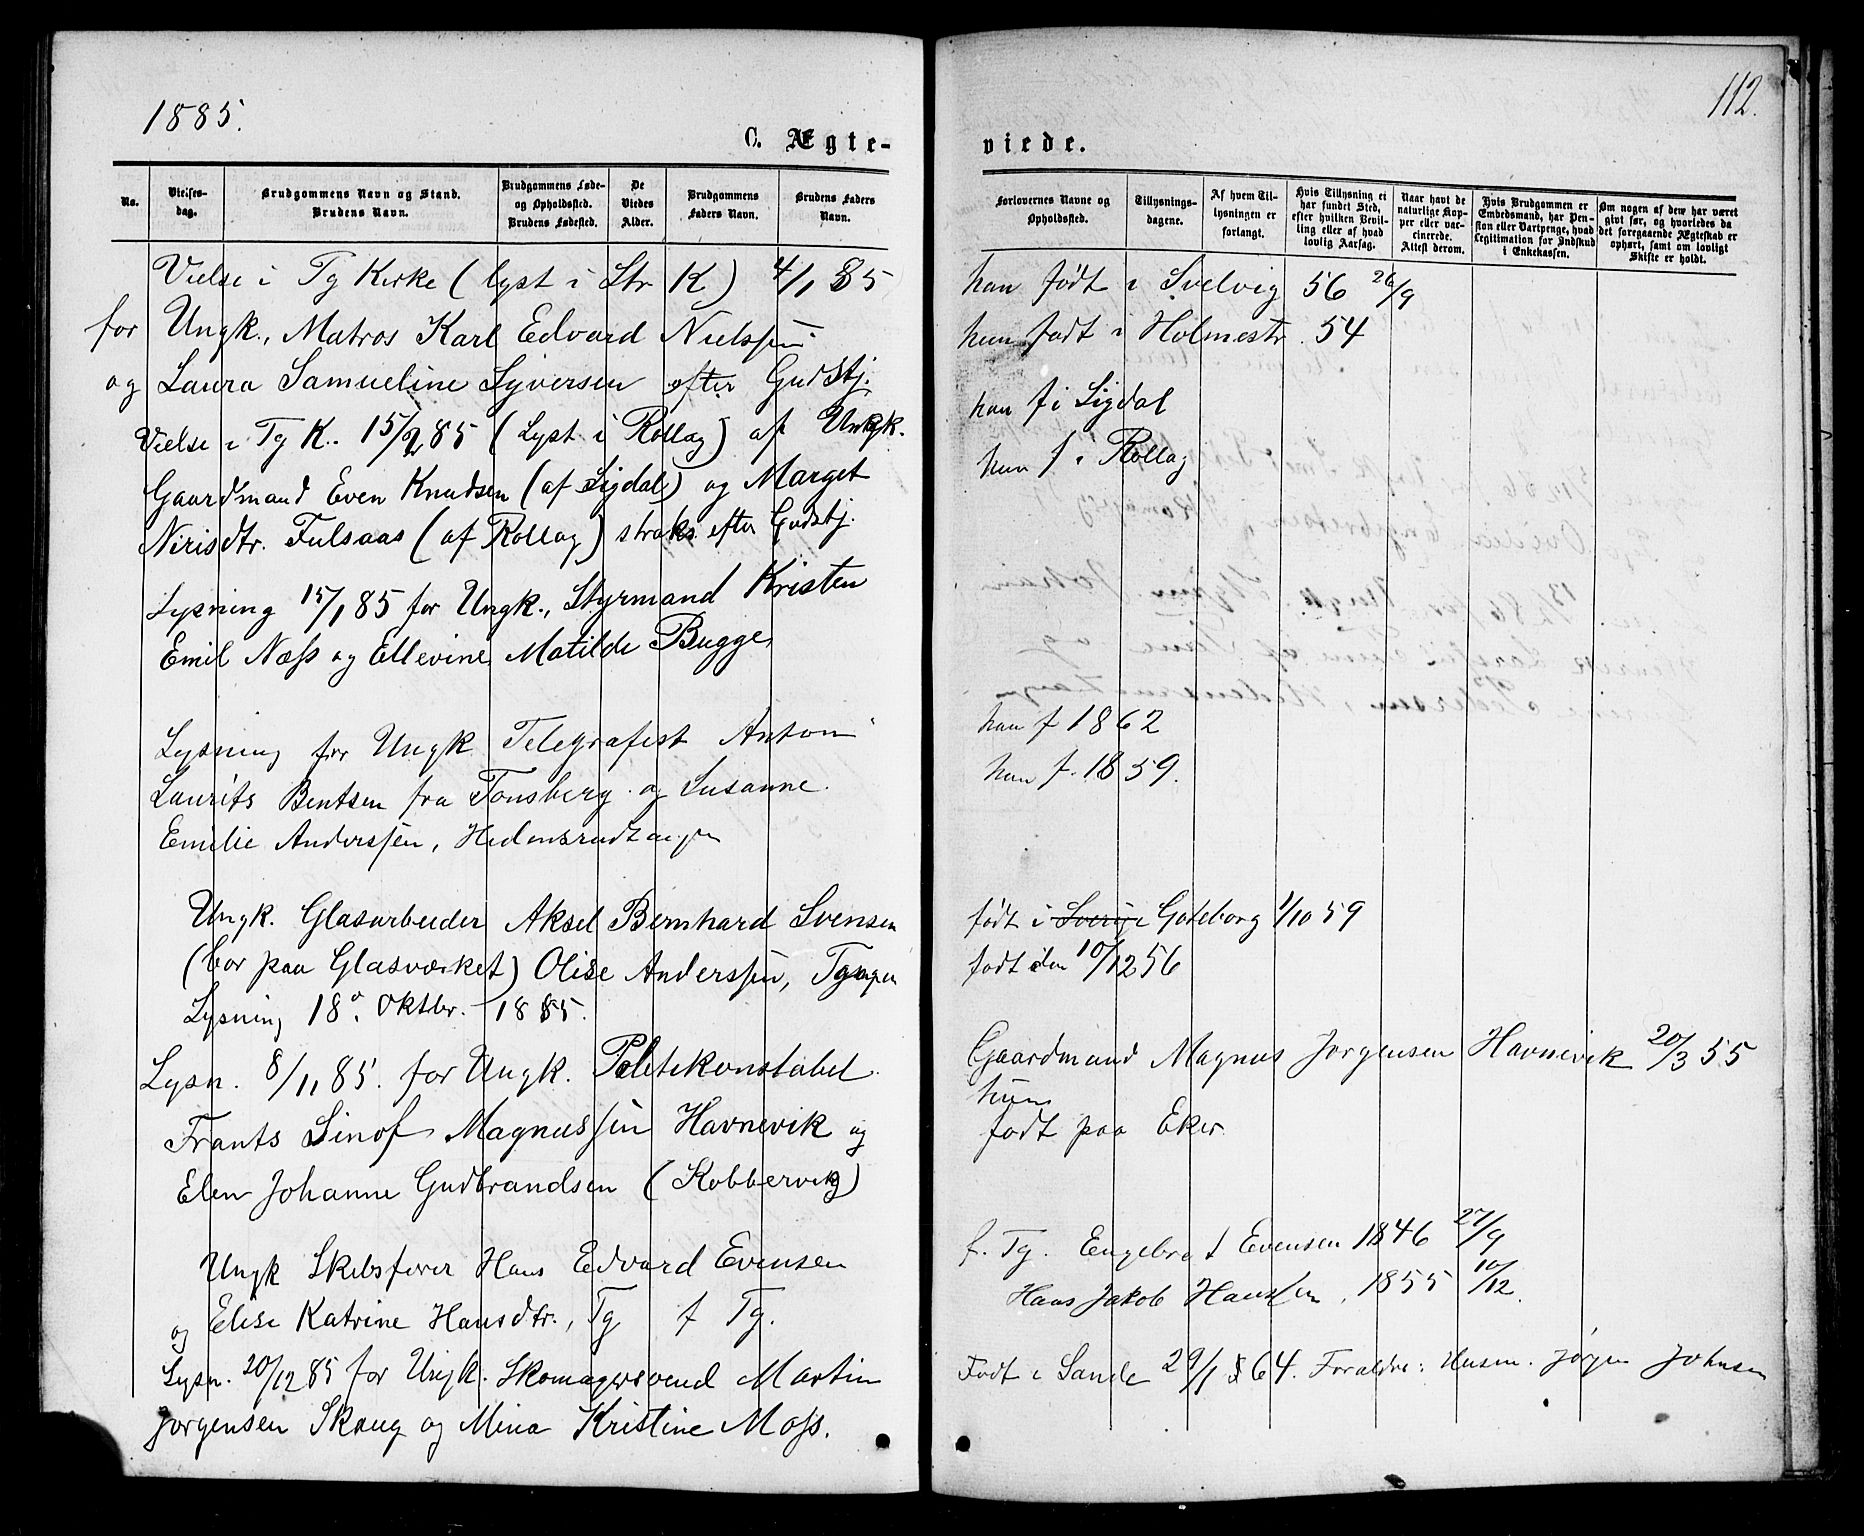 1885.
C. Ægte-
No.
Vielses-
dag.
Brudgommens Navn og Stand.
Brudens Navn.
Brudgommens Føde-
og Opholdssted.
Brudens Fødested.
De
Viedes
Alder.
Brudgommens
Faders Navn.
Brudens Faders
Navn.
Vielse i Tg Kirke (lyst i Str K) 4/1 85
for Ungk., Matros Karl Edvard Nielssen
og Laura Samueline Syversen efter Gudstj.
Vielse i Tg K. 15/2 85 (Lyst i Rollag) af Ungk.
Gaardmand Even Knudsen (af Sigdal) og Marget
Nirisdtr. Fulsaas (af Rollag) straks efter Gudstj.
Lysning 15/1 85 for Ungk., Styrmand Kristen
Emil Næss og Ellevine Matilde Bugge
Lysning for Ungk Telegrafist Anton
Laurits Bentsen fra Tønsberg og Susanne
Emilie Anderssen,
Ungk. Glasarbeider Aksel Bernhard Svensen
(bor paa Glasværket) Olise Anderssen,
Lysning 18. Oktbr. 1885.
Lysn. 8/11 85. for Ungk. Politikonstabel
Frants Sinof Magnussen Havnevik og
Elen Johanne Gudbrandsen (Kobbervik)
Ungk Skibsfører Hans Edvard Evensen
og Elise Katrine Hansdtr., Tg f Tg.
Lysn. 20/12 85 for Ungk. Skomagersvend Martin
Jørgensen Skaug og Mina Kristine Moss.
112.
viede.
Forlovernes Navne og
Opholdssted.
Tillysnings-
dagene.
Af hvem Til-
lysningen er
forlangt.
Hvis Tillysning ei
har fundet Sted,
efter hvilken Bevil-
ling eller af hvad
lovlig Aarsag.
Naar havt de
naturlige Kop-
per eller vac-
cinerede.
Attest derom.
Hvis Brudgommen er
Embedsmand, har Pen-
sion eller Vartpenge, hvad
Legitimation for Indskud
i Enkekassen.
Om nogen af dem har været
gift før, og hvorledes da
det foregaaende Ægteskab er
ophørt, samt om lovligt
Skifte er holdt.
han født i Svelvig 56 26/9
hun født i Holmestr. 54
han f i Sigdal
hun f i Rollag
han f 1862
hun f. 1859.
født i Sverige Gøteborg 1/10 59
født den 10/12 56
Gaardmand Magnus Jørgensen Havnevik 20/3 55
hun
født paa Eker
f. Tg. Engebret Evensen 1846 27/9
Hans Jakob Hanssen, 1855 10/12.
Født i Sande 29/1 64. Forældre: Husm. Jørgen Johnsen